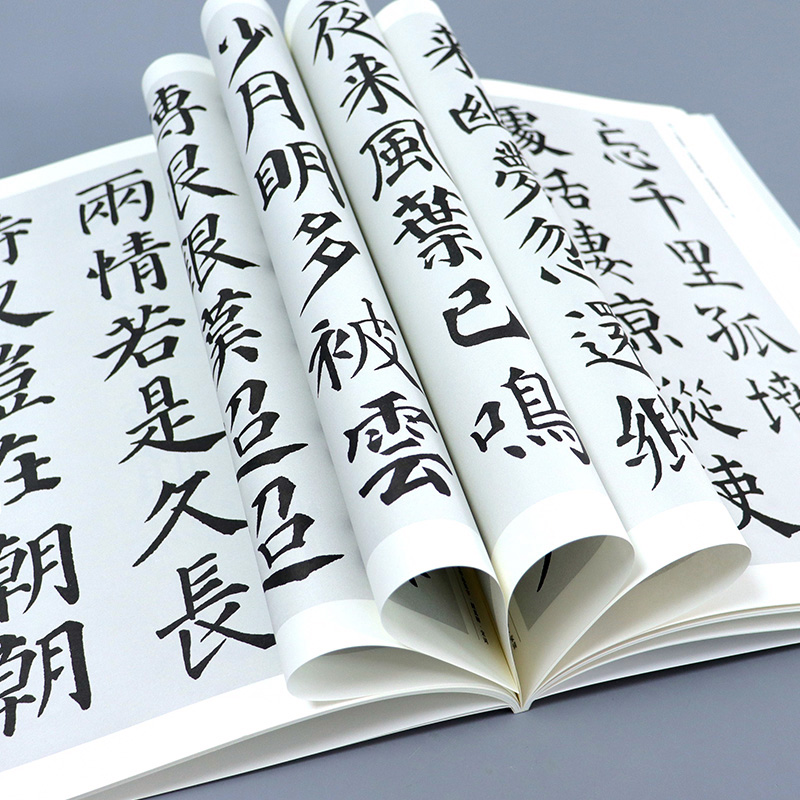 忘千里孤墳
處話淒涼縱使
來幽夢忽還鄉
夜來風葉已鳴
少月明多被雲
傳恨銀漢迢迢
兩情若是久長
時又豈在朝朝